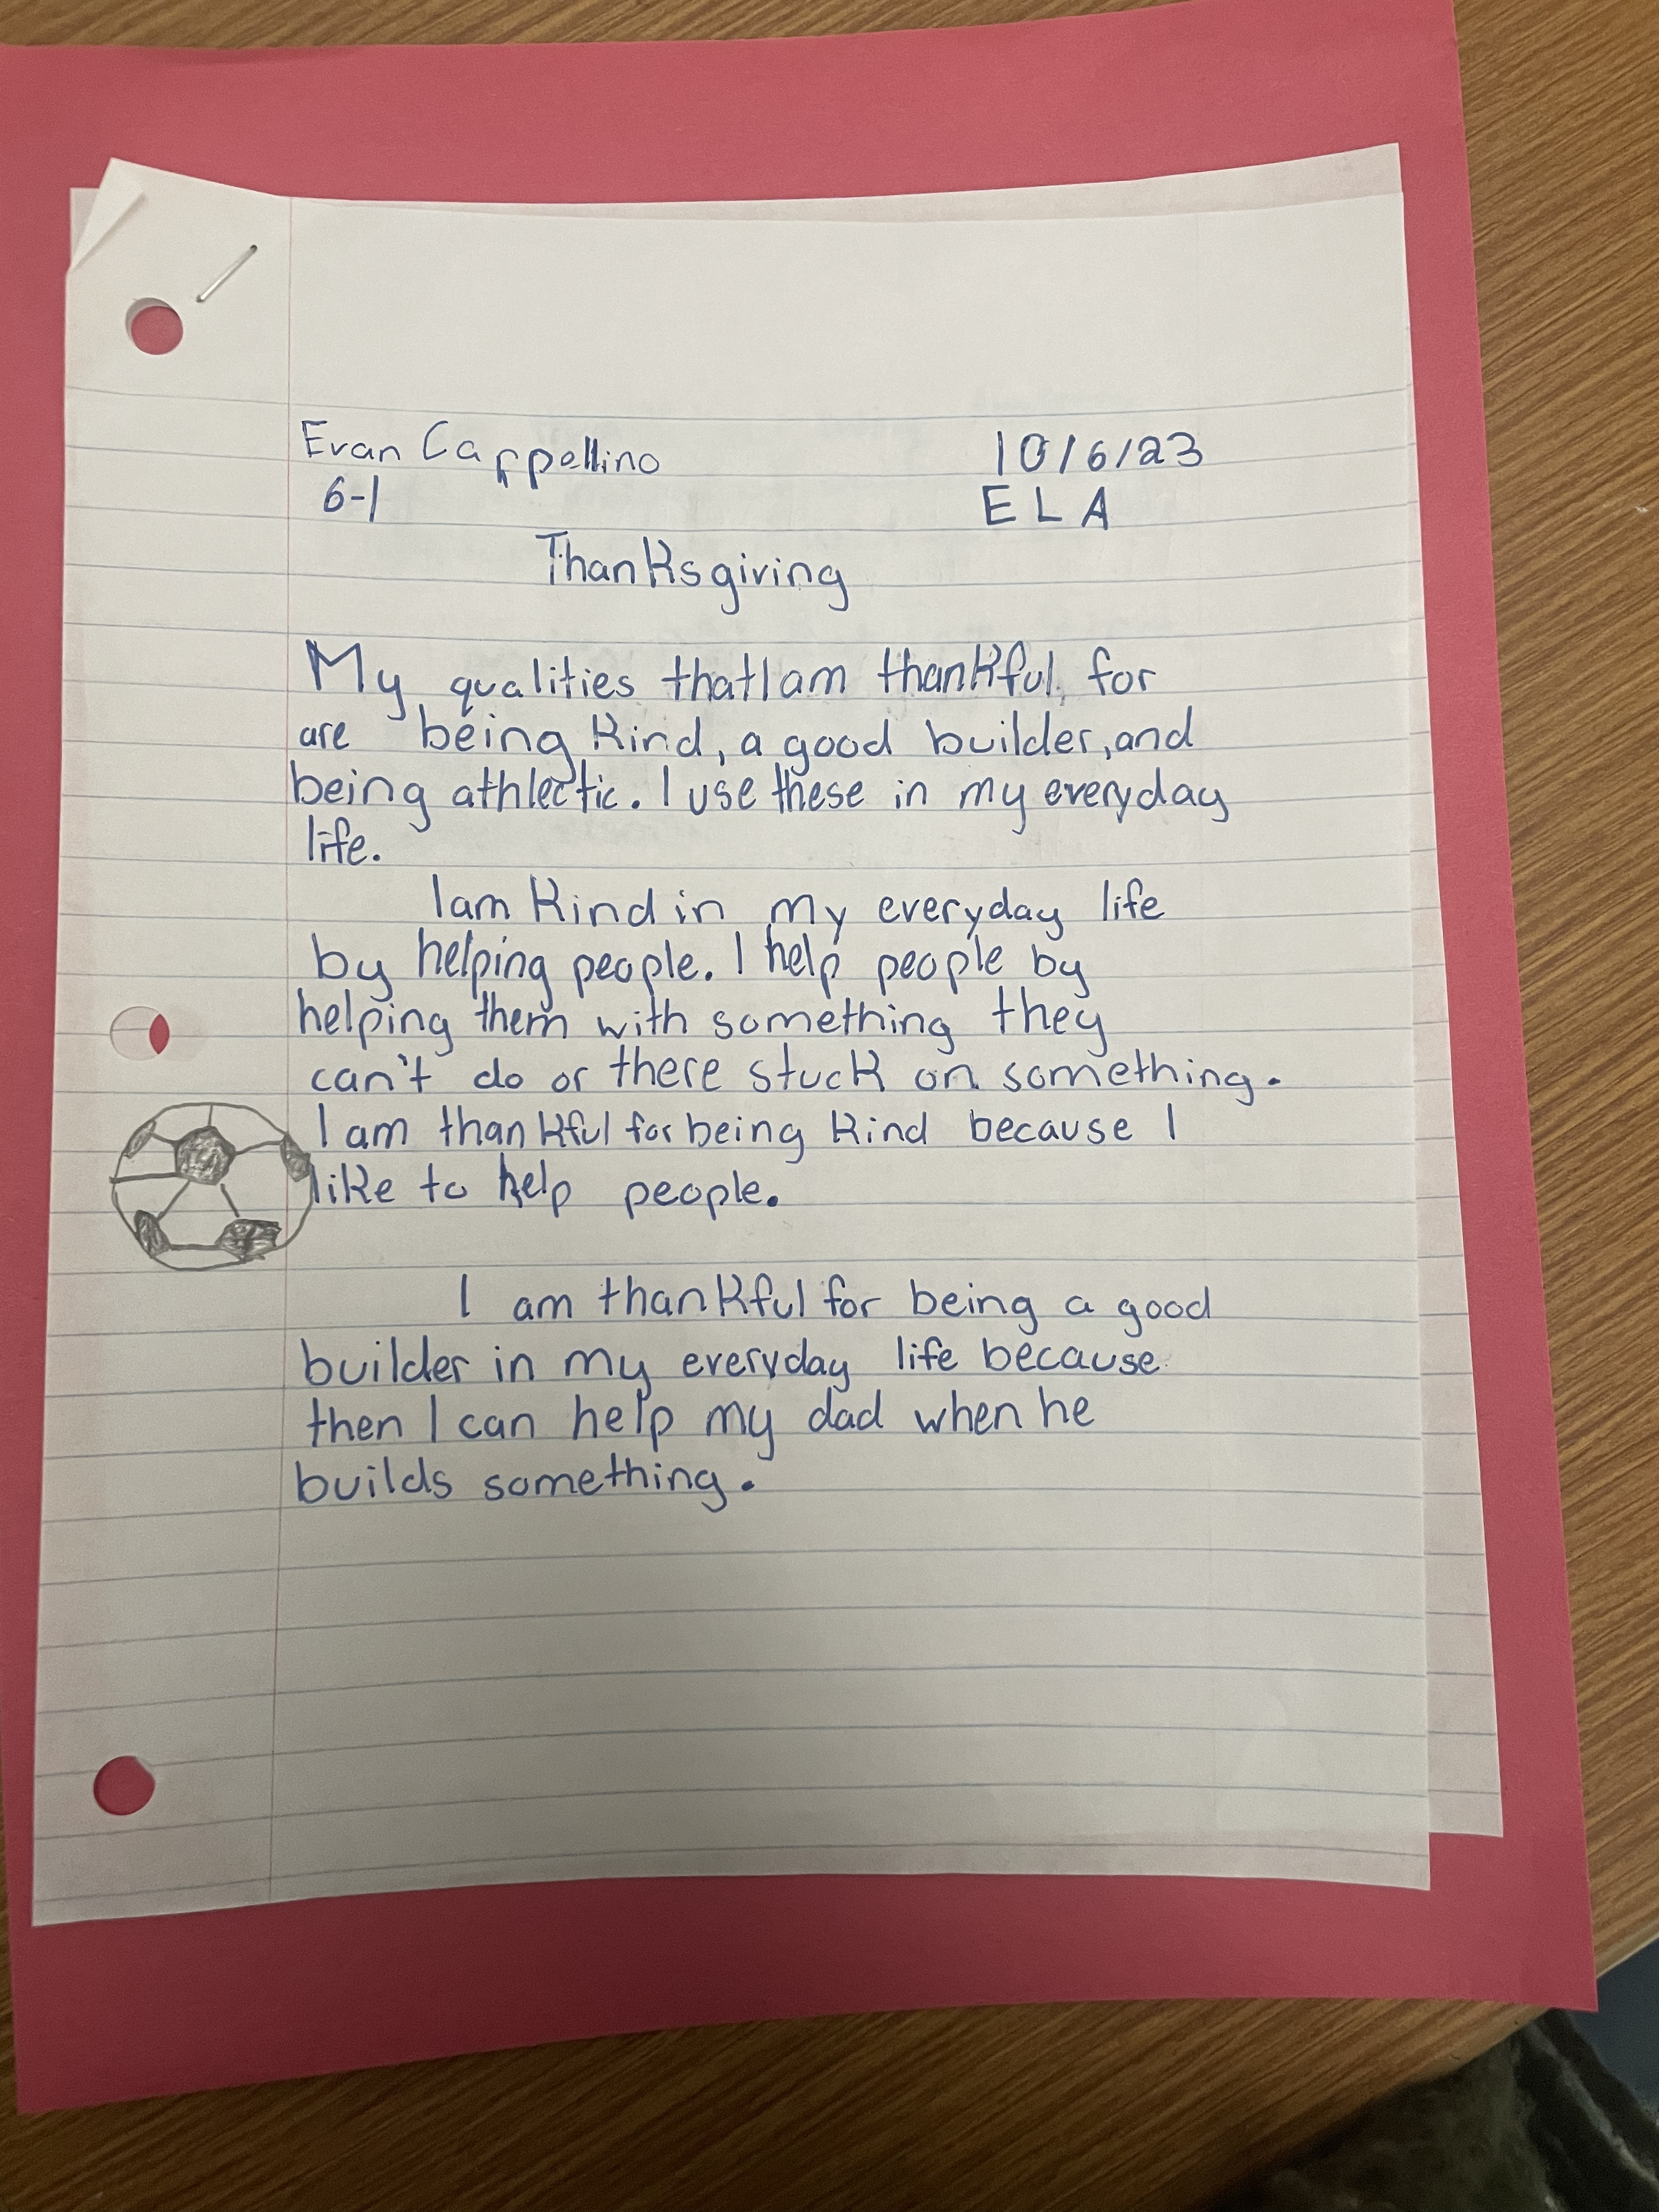 Evan Cappellino 10/6/23
6-1 ELA
Thanksgiving
My qualities that I am thankful for
are being kind, a good builder, and
being athlectic. I use these in my everyday
life.
I am kind in my everyday life
by helping people. I help people by
helping them with something they
can't do or there stuck on something.
I am thankful for being kind because I
like to help people.
I am thankful for being a good
builder in my everyday life because
then I can help my dad when he
builds something.